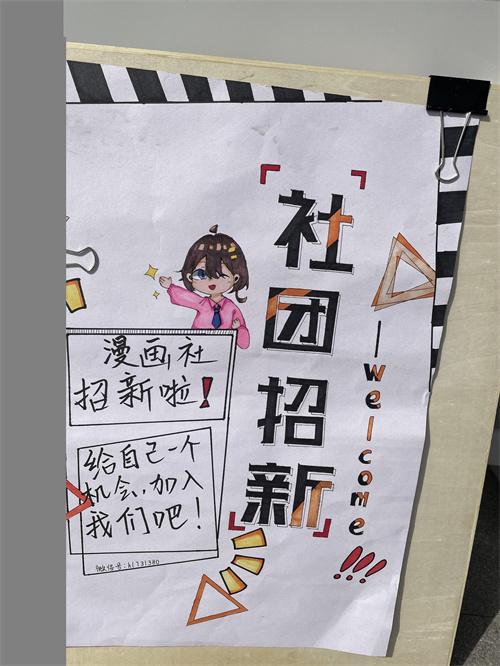 社团招新
welcome!!!
漫画社
招新啦！
给自己一个
机会，加入
我们吧！
微信号：A1731380